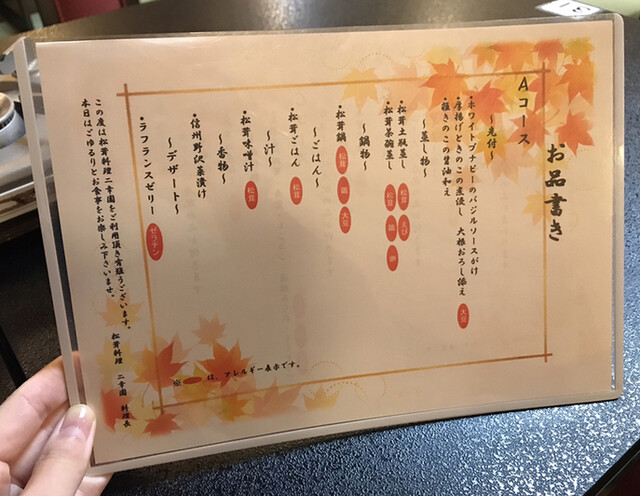 お品書き
Aコース
～先付～
・ホワイトブナピーのバジルソースがけ
・厚揚げときのこの煮浸し 大根おろし添え 大豆
・種きのこの醤油和え
～蒸し物～
・松茸土瓶蒸し 松茸 えび
・松茸茶碗蒸し 松茸 鶏 卵
～鍋物～
・松茸鍋 松茸 鶏 大豆
～ごはん～
・松茸ごはん 松茸
～汁～
・松茸味噌汁 松茸
～香物～
・信州野沢菜漬け
～デザート～
・ラフランスゼリー ゼラチン
※ は、アレルギー表示です。
この度は松茸料理 二幸園をご利用頂き有難うございます。
本日はごゆるりとお食事をお楽しみ下さいませ。
松茸料理 二幸園 料理長